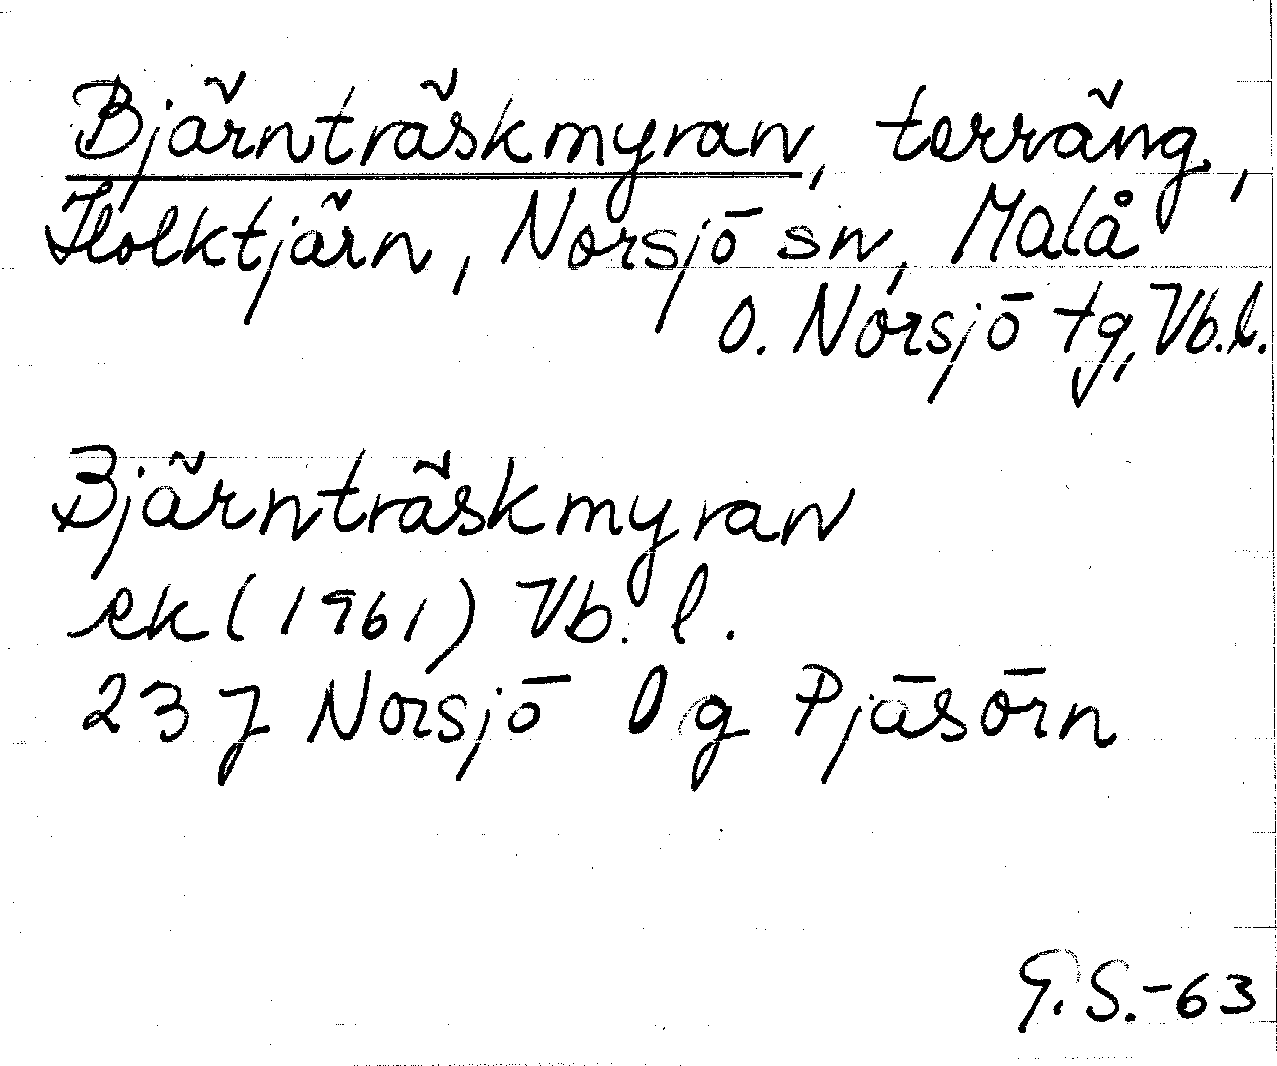 Bjärnträskmyran, terräng,
Holktjärn, Norsjö sn, Malå
o. Norsjö tg, Vb.l.
Bjärnträskmyran
ek (1961) Vb. l.
23 J Norsjö 0 g Pjäsörn
G.S.-63